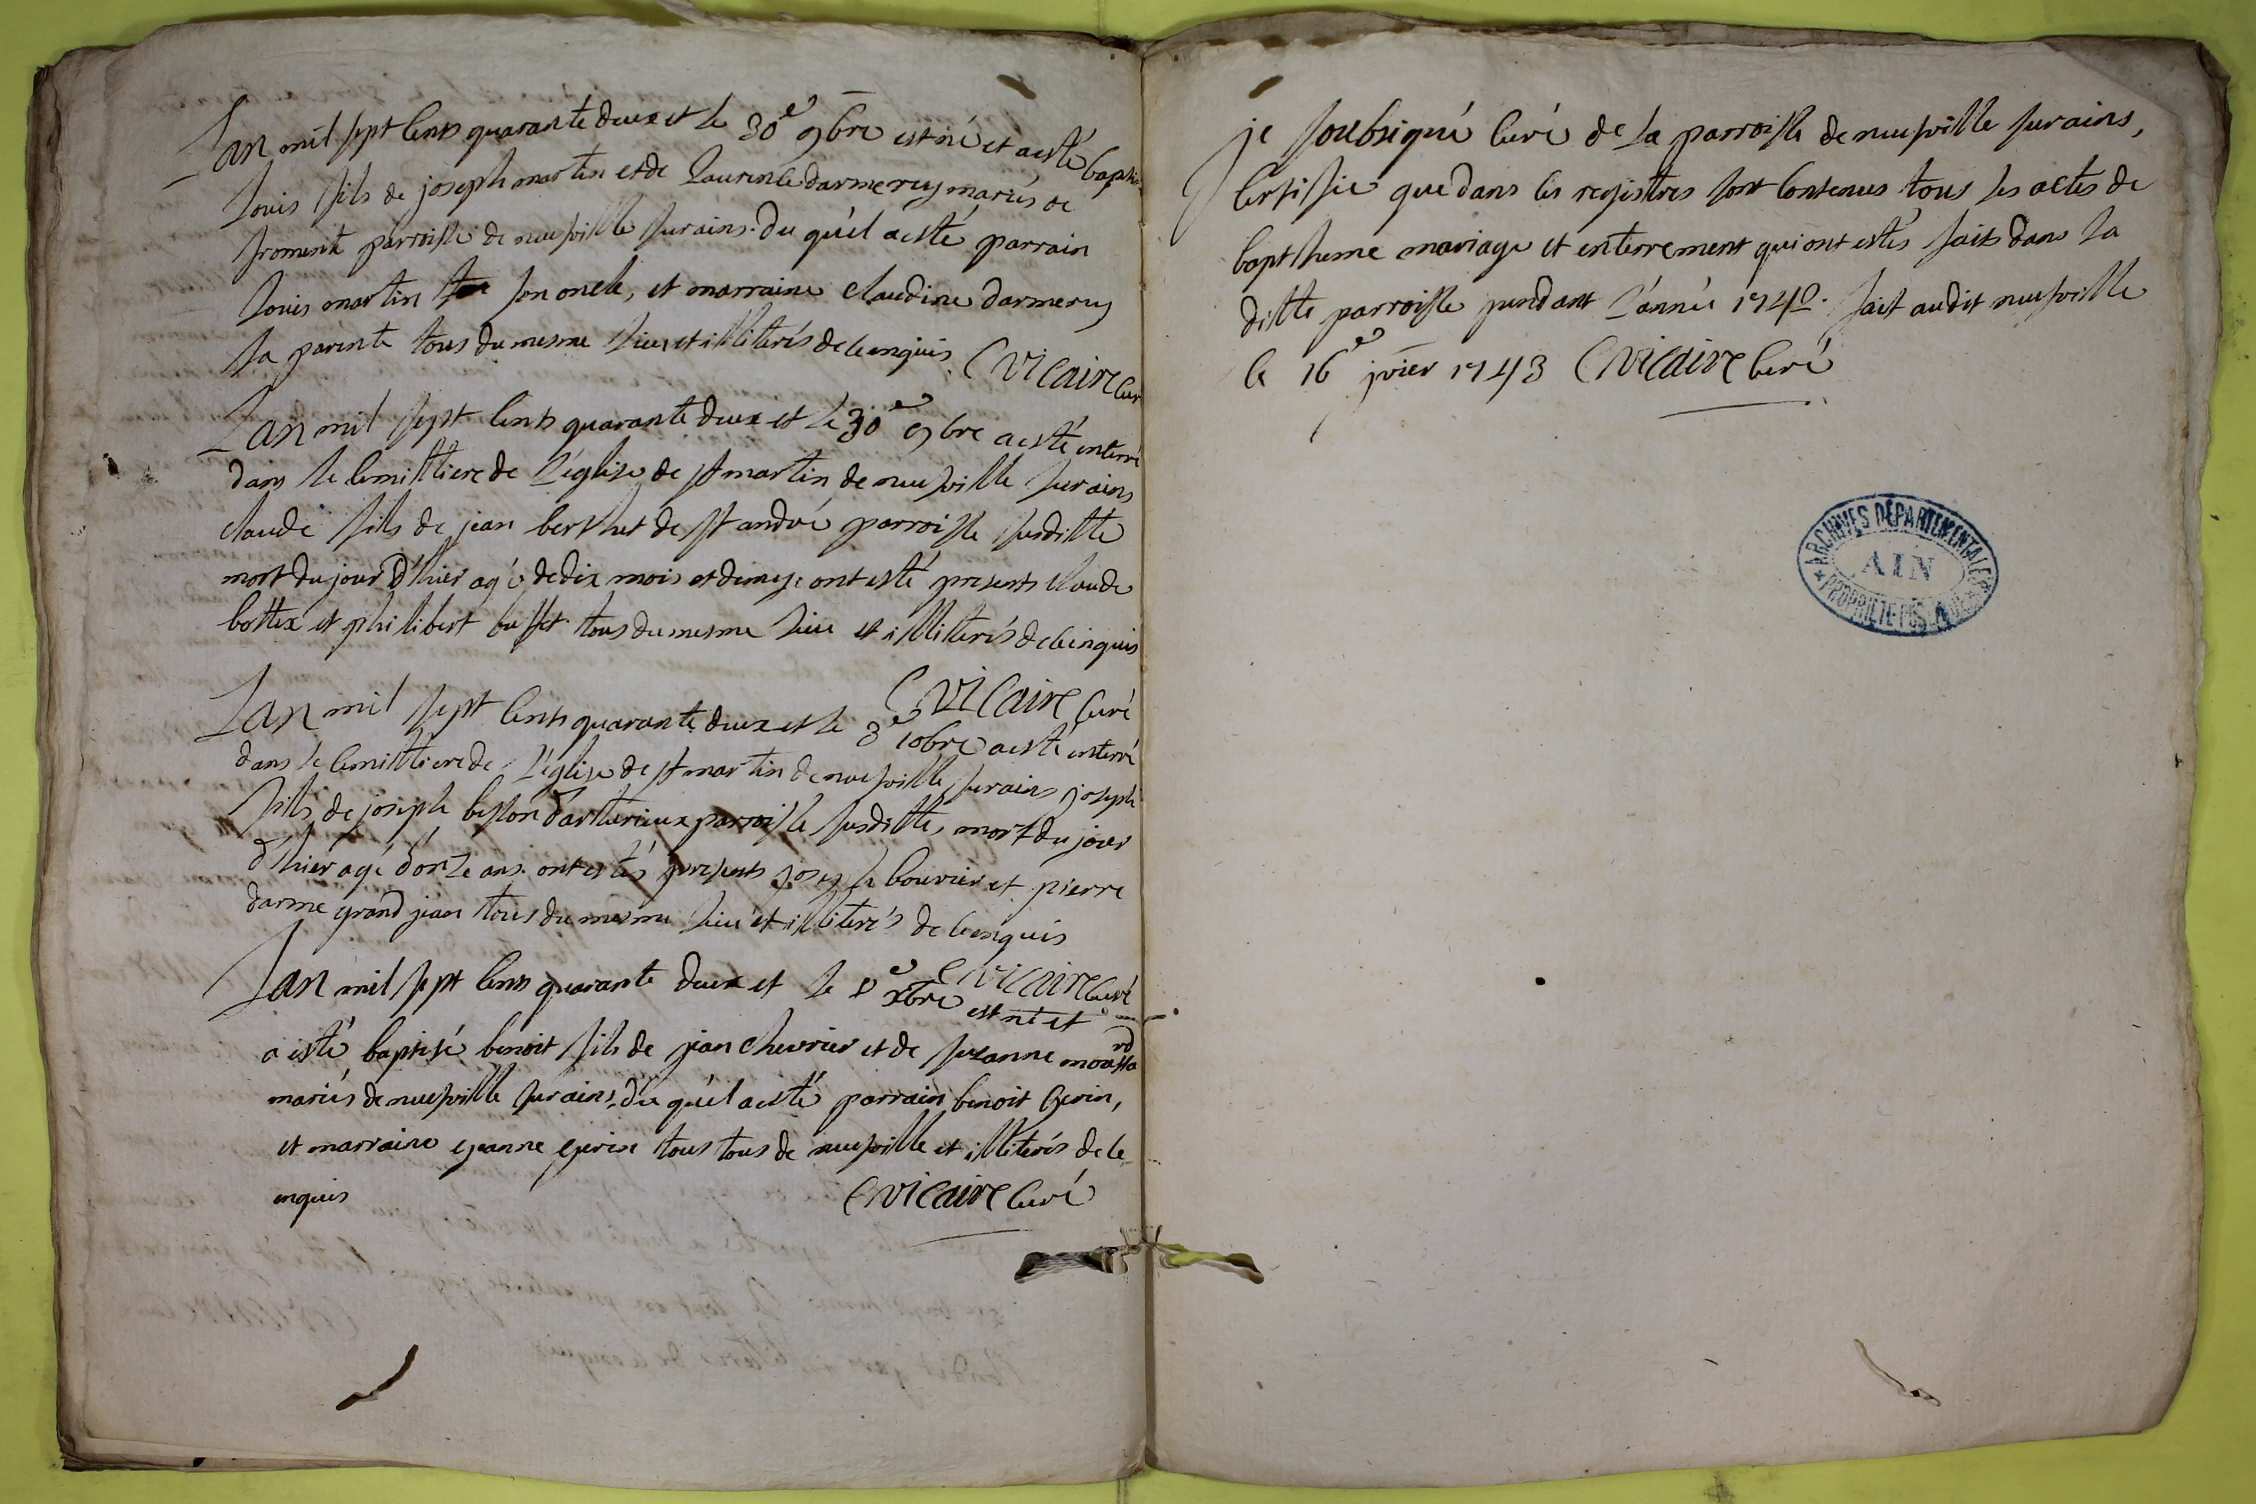 Lan mil sept cents quarante deux et le 30e 9bre est né et a esté baptisé
Louis fils de joseph martin et de Laurence darmency mariés de
fromente parroisse de neufville sur ains. du quél a esté parrain
Louis martin son oncle, et marraine claudine darmency
sa parente tous du mesme lieu et illiterés de ce enquis. C Vicaire curé
Lan mil sept cents quarante deux et le 30e 9bre a esté enterré
dans le cemittiere de L'église de st martin de neufville sur ains
claude fils de jean berthet de st andré parroisse susditte
mort du jour d'hier agé de dix mois et demy, ont esté presents claude
bottex et philibert buffet tous du mesme lieu et illiterés de ce enquis
C Vicaire curé
Lan mil sept cents quarante deux et le 3e 10bre a esté enterré
dans le cemittiere de L'église de st martin de neufville sur ains joseph
fils de joseph beston d'arturieux parroisse susditte, mort du jour
d'hier agé d'onze ans. ont estés presents joseph bouvier et pierre
darme grand jean tous du mesme lieu et illiterés de ce enquis
C Vicaire curé
Lan mil sept cents quarante deux et le 8e xbre est né et
a esté baptisé benoit fils de jean chevrier et de suzanne moussard
mariés de neufville sur ains, du quél a esté parrain benoit Gerin,
et marraine jeanne gerin tous tous de neufville et illiterés de ce
enquis C Vicaire curé
je soubsigné curé de La parroisse de neufville sur ains,
certifie que dans ces registres sont contenus tous les actes de
baptsheme mariage et enterrement qui ont estés faits dans La
ditte parroisse pendant L'année 1742. fait audit neufville
le 16e jvier 1743 C Vicaire curé
ARCHIVES DÉPARTEMENTALES
AIN
PROPRIÉTÉ PUBLIQUE